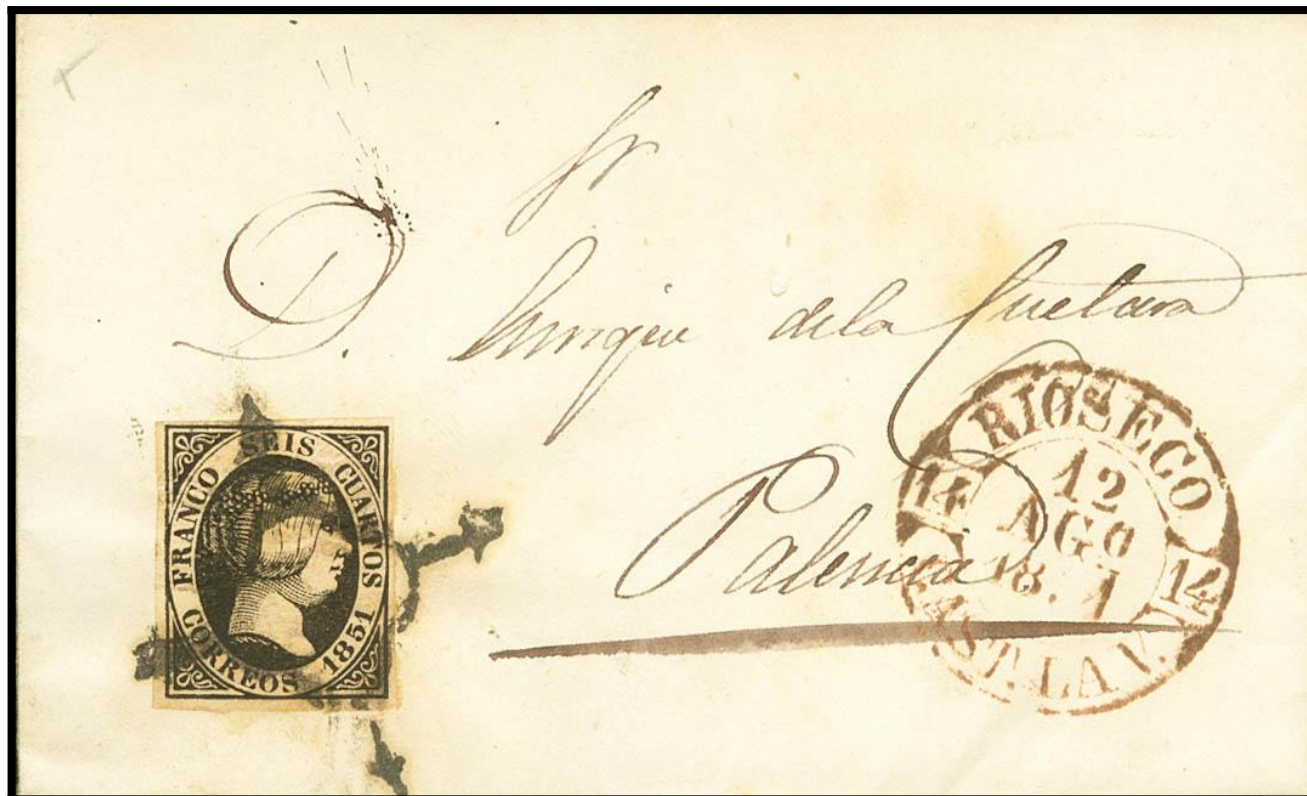 Sr
D. Enrique de la Cuetara
Palencia
FRANCO SEIS CUARTOS
CORREOS 1851
RIOSECO
14 14
12
AGO
18. 1
CAST. LA V.